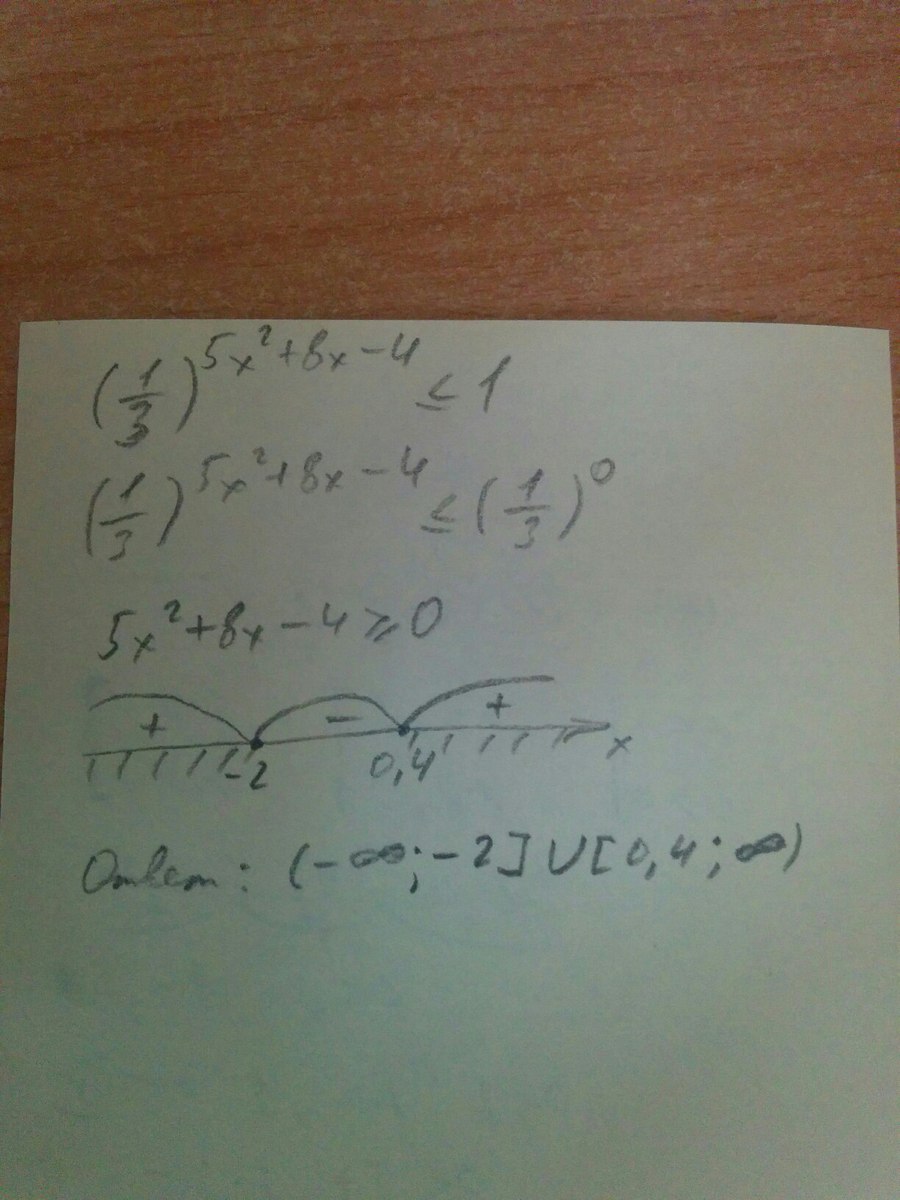 (1/3)^(5x²+8x-4) ≤ 1
(1/3)^(5x²+8x-4) ≤ (1/3)^0
5x²+8x-4 ≥ 0
+ - +
-2 0,4 x
Ответ: (-∞;-2]∪[0,4;∞)